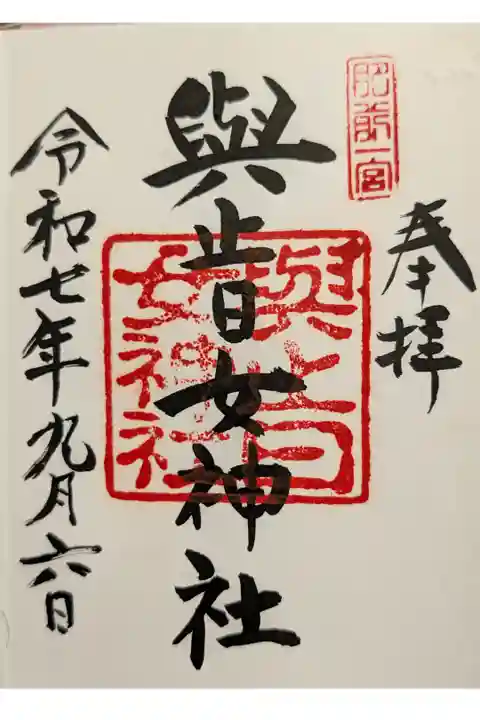 奉拝
肥前一宮
與止日女神社
與止日
女神社
令和七年九月六日